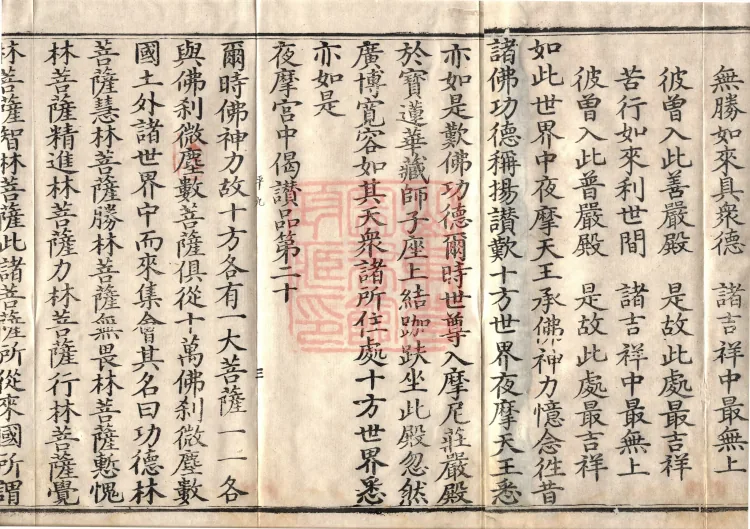 無勝如來具眾德　諸吉祥中最無上
彼曾入此善嚴殿　是故此處最吉祥
苦行如來利世間　諸吉祥中最無上
彼曾入此普嚴殿　是故此處最吉祥
如此世界中夜摩天王承佛神力憶念徃昔
諸佛功德稱揚讃歎十方世界夜摩天王悉
亦如是歎佛功德爾時世尊入摩尼莊嚴殿
於寳蓮華藏師子座上結跏趺坐此殿忽然
廣博寛容如其天衆諸所住處十方世界悉
亦如是
夜摩宮中偈讃品第二十
爾時佛神力故十方各有一大菩薩一一各
與佛刹微塵數菩薩俱從十萬佛刹微塵數
國土外諸世界中而來集會其名曰功德林
菩薩慧林菩薩勝林菩薩無畏林菩薩慙愧
林菩薩精進林菩薩力林菩薩行林菩薩覺
林菩薩智林菩薩此諸菩薩所從來國所謂